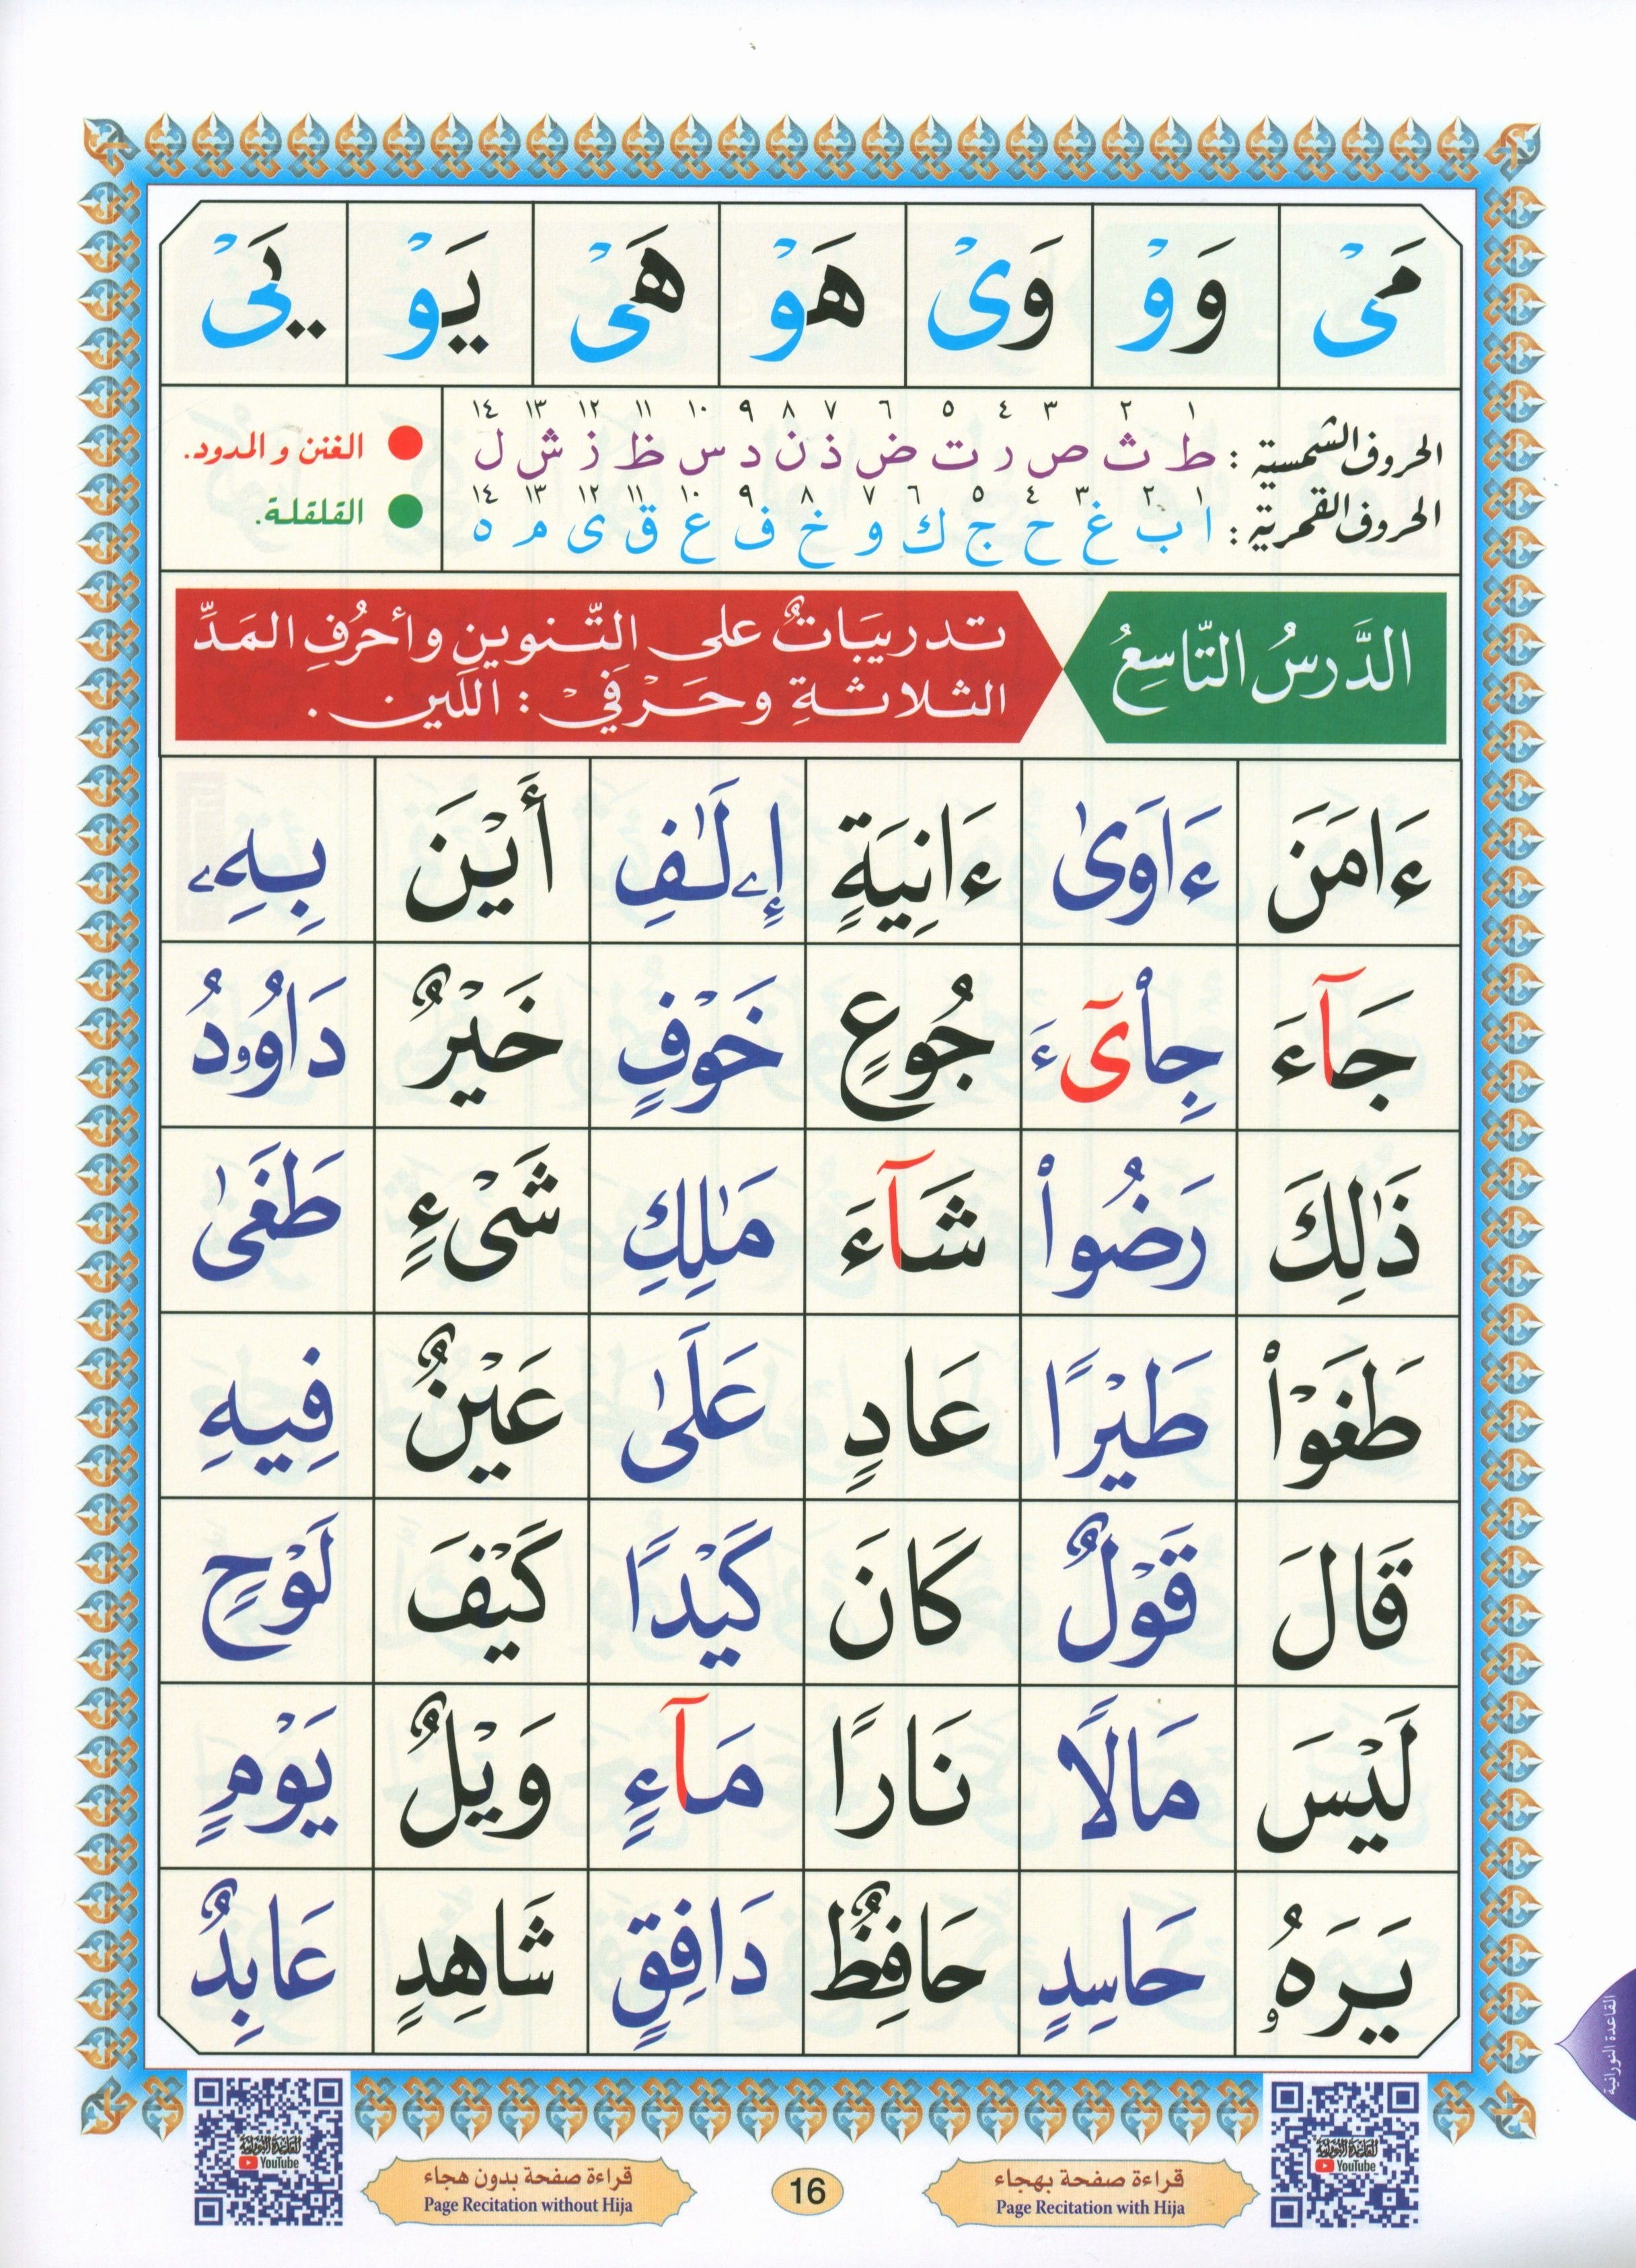 مَىْ وَوْ وَىْ هَوْ هَىْ يَوْ يَىْ
١ ٢ ٣ ٤ ٥ ٦ ٧ ٨ ٩ ١٠ ١١ ١٢ ١٣ ١٤
الحروف الشمسية : ط ث ص ر ت ض ذ ن د س ظ ز ش ل
١ ٢ ٣ ٤ ٥ ٦ ٧ ٨ ٩ ١٠ ١١ ١٢ ١٣ ١٤
الحروف القمرية : ا ب غ ح ج ك و خ ف ع ق ى م ه
الغنن و المدود.
القلقلة.
الدَّرسُ التَّاسِعُ
تدريبَاتٌ على التَّنوينِ وأحرُفِ المَدِّ
الثلاثةِ وحَرْفَيْ : اللِّين .
ءَامَنَ ءَاوَىٰ ءَانِيَةٍ إِۦلَـٰفِ أَيْنَ بِهِۦ
جَآءَ جِا۟ىٓءَ جُوعٍ خَوْفٍ خَيْرٌ دَاوُۥدُ
ذَٰلِكَ رَضُوا۟ شَآءَ مَـٰلِكِ شَىْءٍ طَغَىٰ
طَغَوْا۟ طَيْرًا عَادٍ عَلَىٰ عَيْنٌ فِيهِ
قَالَ قَوْلٌ كَانَ كَيْدًا كَيْفَ لَوْحٍ
لَيْسَ مَالًا نَارًا مَآءٍ وَيْلٌ يَوْمٍ
يَرَهُۥ حَاسِدٍ حَافِظٌ دَافِقٍ شَاهِدٍ عَابِدٌ
القاعدة النورانية
القاعدة النورانية
YouTube
قراءة صفحة بهجاء
Page Recitation with Hija
16
قراءة صفحة بدون هجاء
Page Recitation without Hija
القاعدة النورانية
YouTube